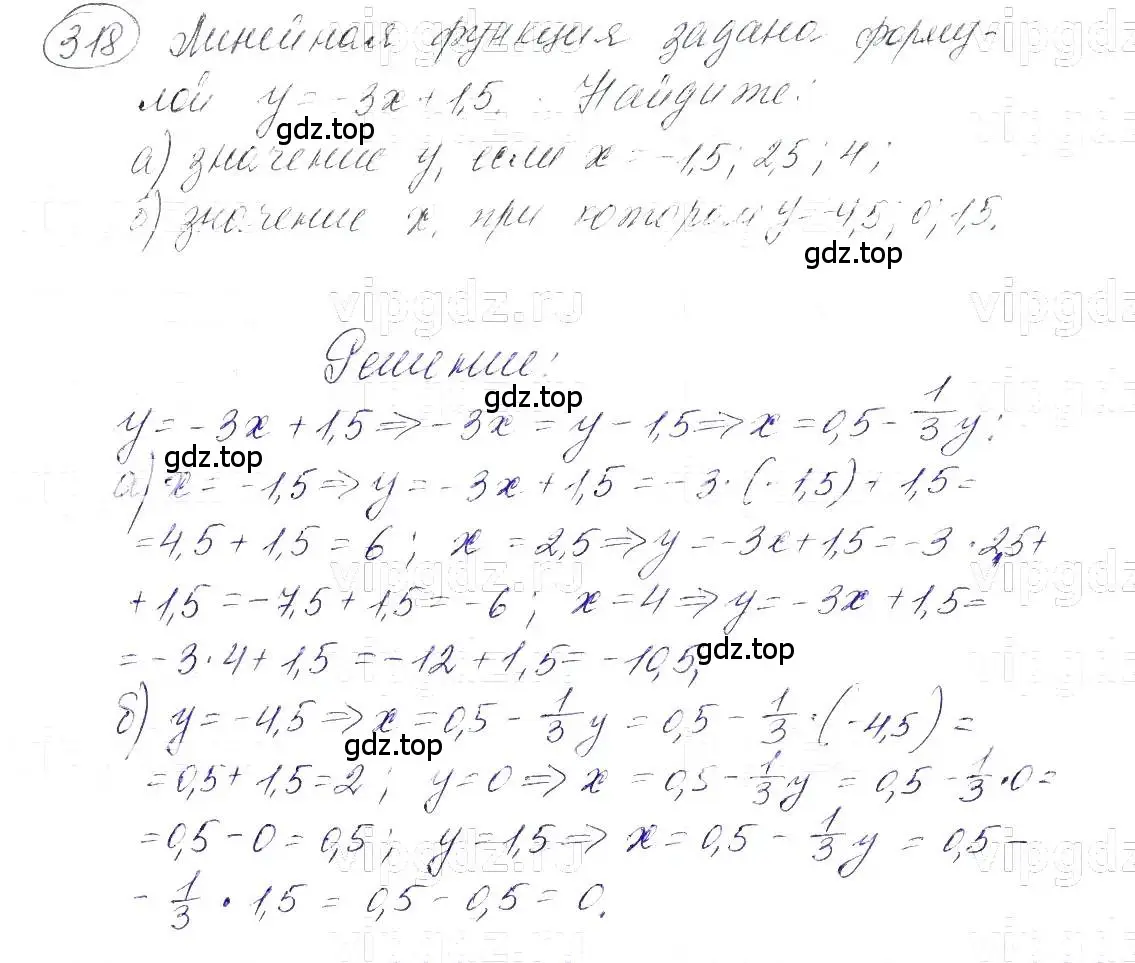 318 Линейная функция задана форму-
лой y = -3x + 1,5. Найдите:
gdz.top
а) значение y, если x = -1,5; 2,5; 4;
б) значение x, при котором y = -4,5; 0; 1,5.
gdz.top
vipgdz.ru
Решение:
gdz.top
y = -3x + 1,5 => -3x = y - 1,5 => x = 0,5 - 1/3 y;
gdz.top
а) x = -1,5 => y = -3x + 1,5 = -3·(-1,5) + 1,5 =
= 4,5 + 1,5 = 6; x = 2,5 => y = -3x + 1,5 = -3·2,5 +
vipgdz.ru
+ 1,5 = -7,5 + 1,5 = -6; x = 4 => y = -3x + 1,5 =
= -3·4 + 1,5 = -12 + 1,5 = -10,5;
gdz.top
б) y = -4,5 => x = 0,5 - 1/3 y = 0,5 - 1/3·(-4,5) =
gdz.top
= 0,5 + 1,5 = 2; y = 0 => x = 0,5 - 1/3 y = 0,5 - 1/3·0 =
= 0,5 - 0 = 0,5; y = 1,5 => x = 0,5 - 1/3 y = 0,5 -
vipgdz.ru
- 1/3 · 1,5 = 0,5 - 0,5 = 0.